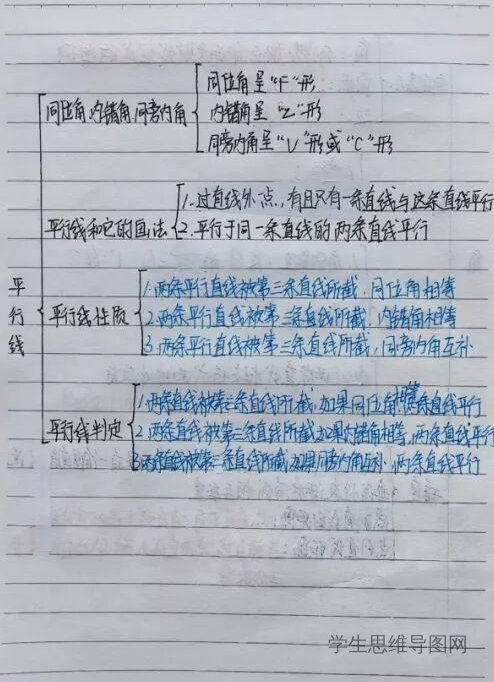 同位角呈"F"形
同位角、内错角、同旁内角
内错角呈"Z"形
同旁内角呈"U"形或"C"形
1.过直线外点,有且只有一条直线与这条直线平行
平行线和它的画法
2.平行于同一条直线的两条直线平行
平行线
1.两条平行直线被第三条直线所截,同位角相等
平行线性质
2.两条平行直线被第三条直线所截,内错角相等
3.两条平行直线被第三条直线所截,同旁内角互补
1.两条直线被第三条直线所截,如果同位角相等,两条直线平行
平行线判定
2.两条直线被第三条直线所截,如果内错角相等,两条直线平行
3.两条直线被第三条直线所截,如果同旁内角互补,两条直线平行
学生思维导图网